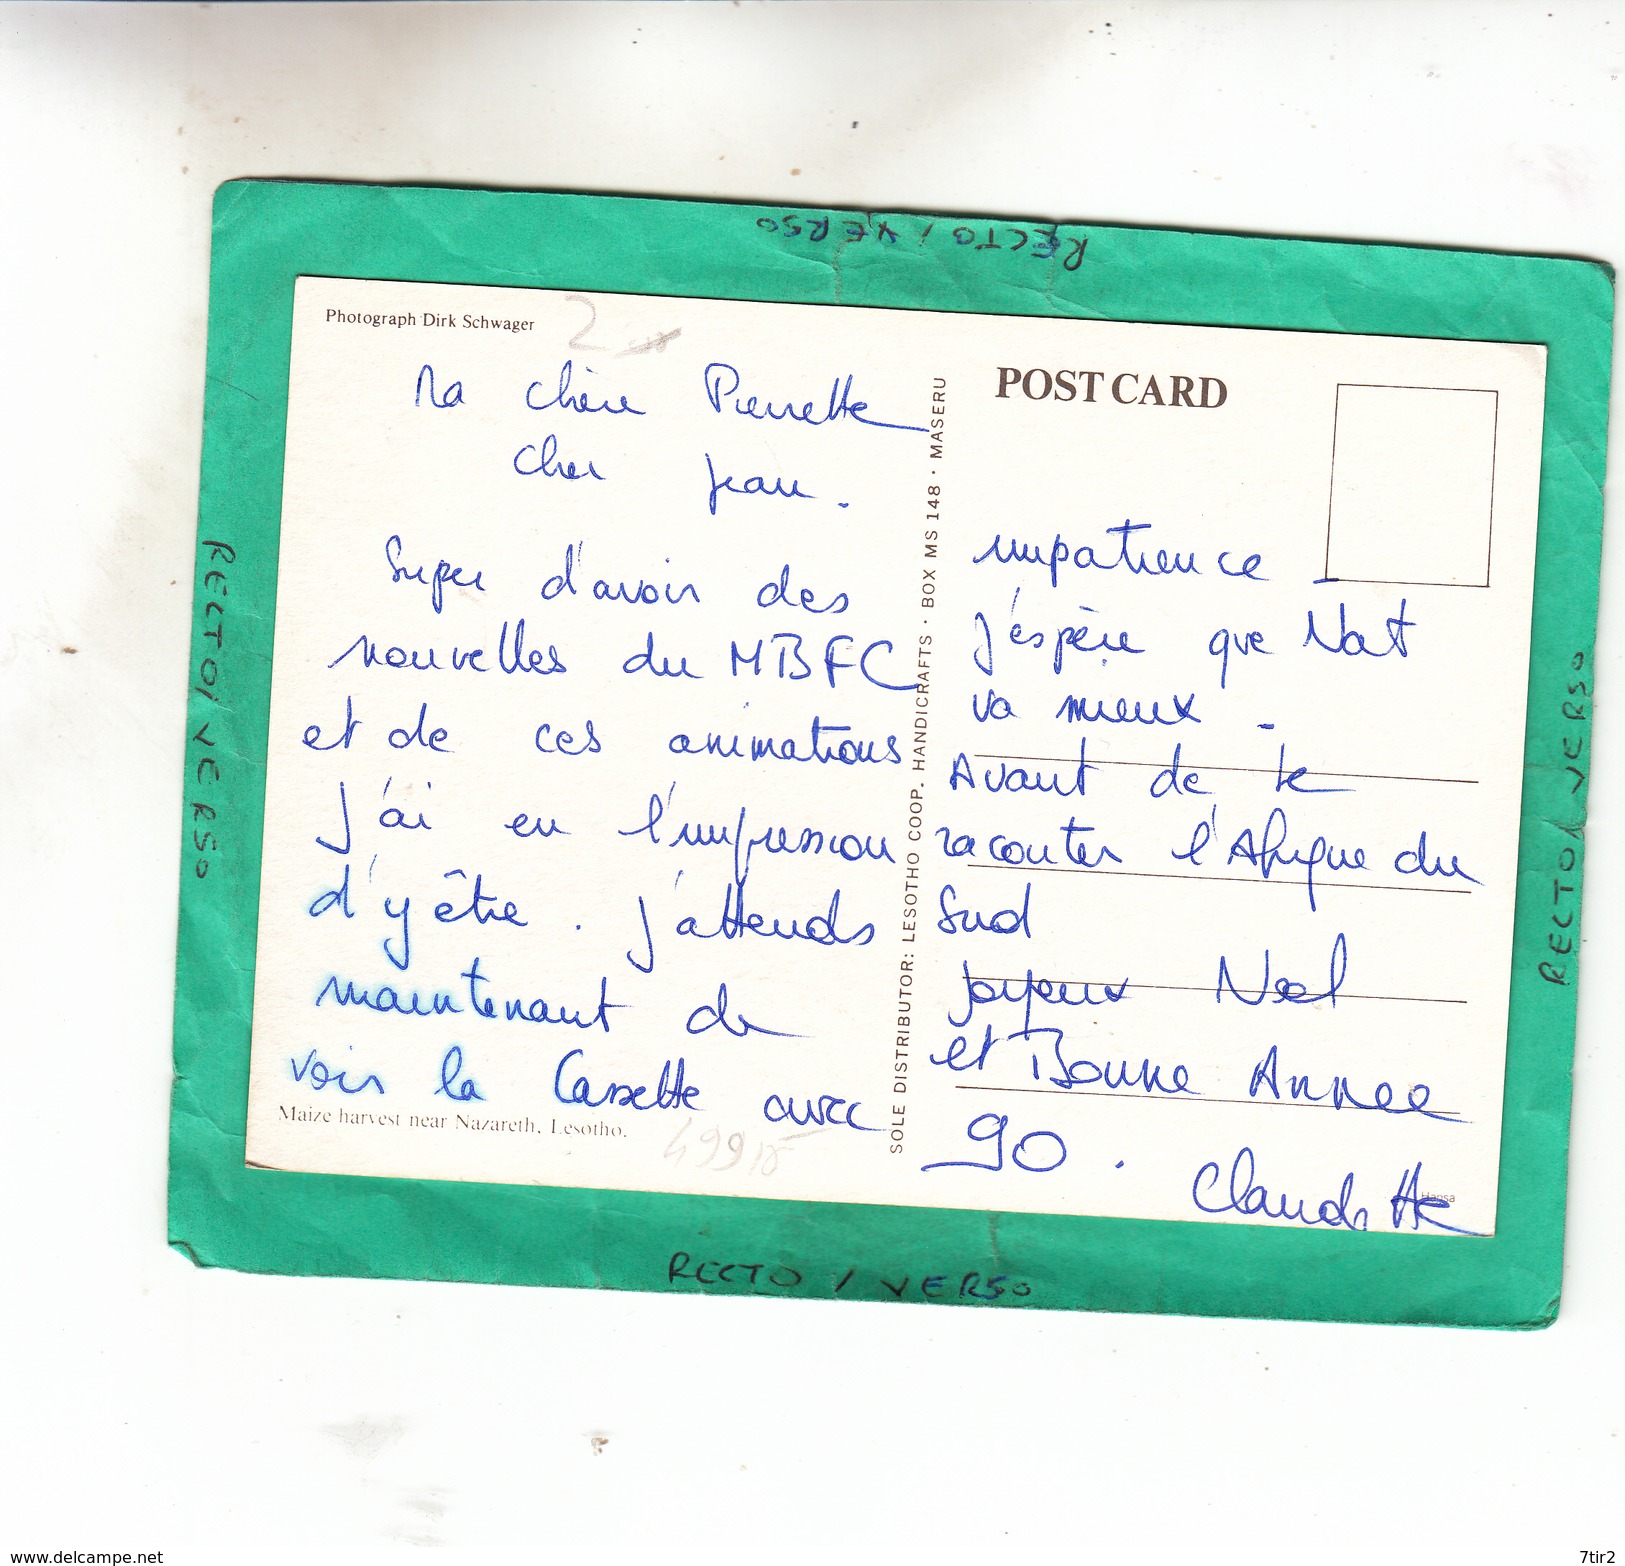 RECTO / VERSO
Photograph Dirk Schwager
2
Ma chère Pierrette
Cher Jean.
Super d'avoir des
nouvelles du MBFC
et de ces animations
J'ai eu l'impression
d'y être. J'attends
maintenant de
voir la Cassette avec
Maize harvest near Nazareth, Lesotho.
SOLE DISTRIBUTOR: LESOTHO COOP. HANDICRAFTS · BOX MS 148 · MASERU
POST CARD
impatience
J'espère que Nat
va mieux.
Avant de te
raconter l'Afrique du
Sud
Joyeux Noel
et Bonne Annee
90.
Claudette
Hansa
RECTO / VERSO
RECTO / VERSO
RECTO / VERSO
www.delcampe.net
7tir2